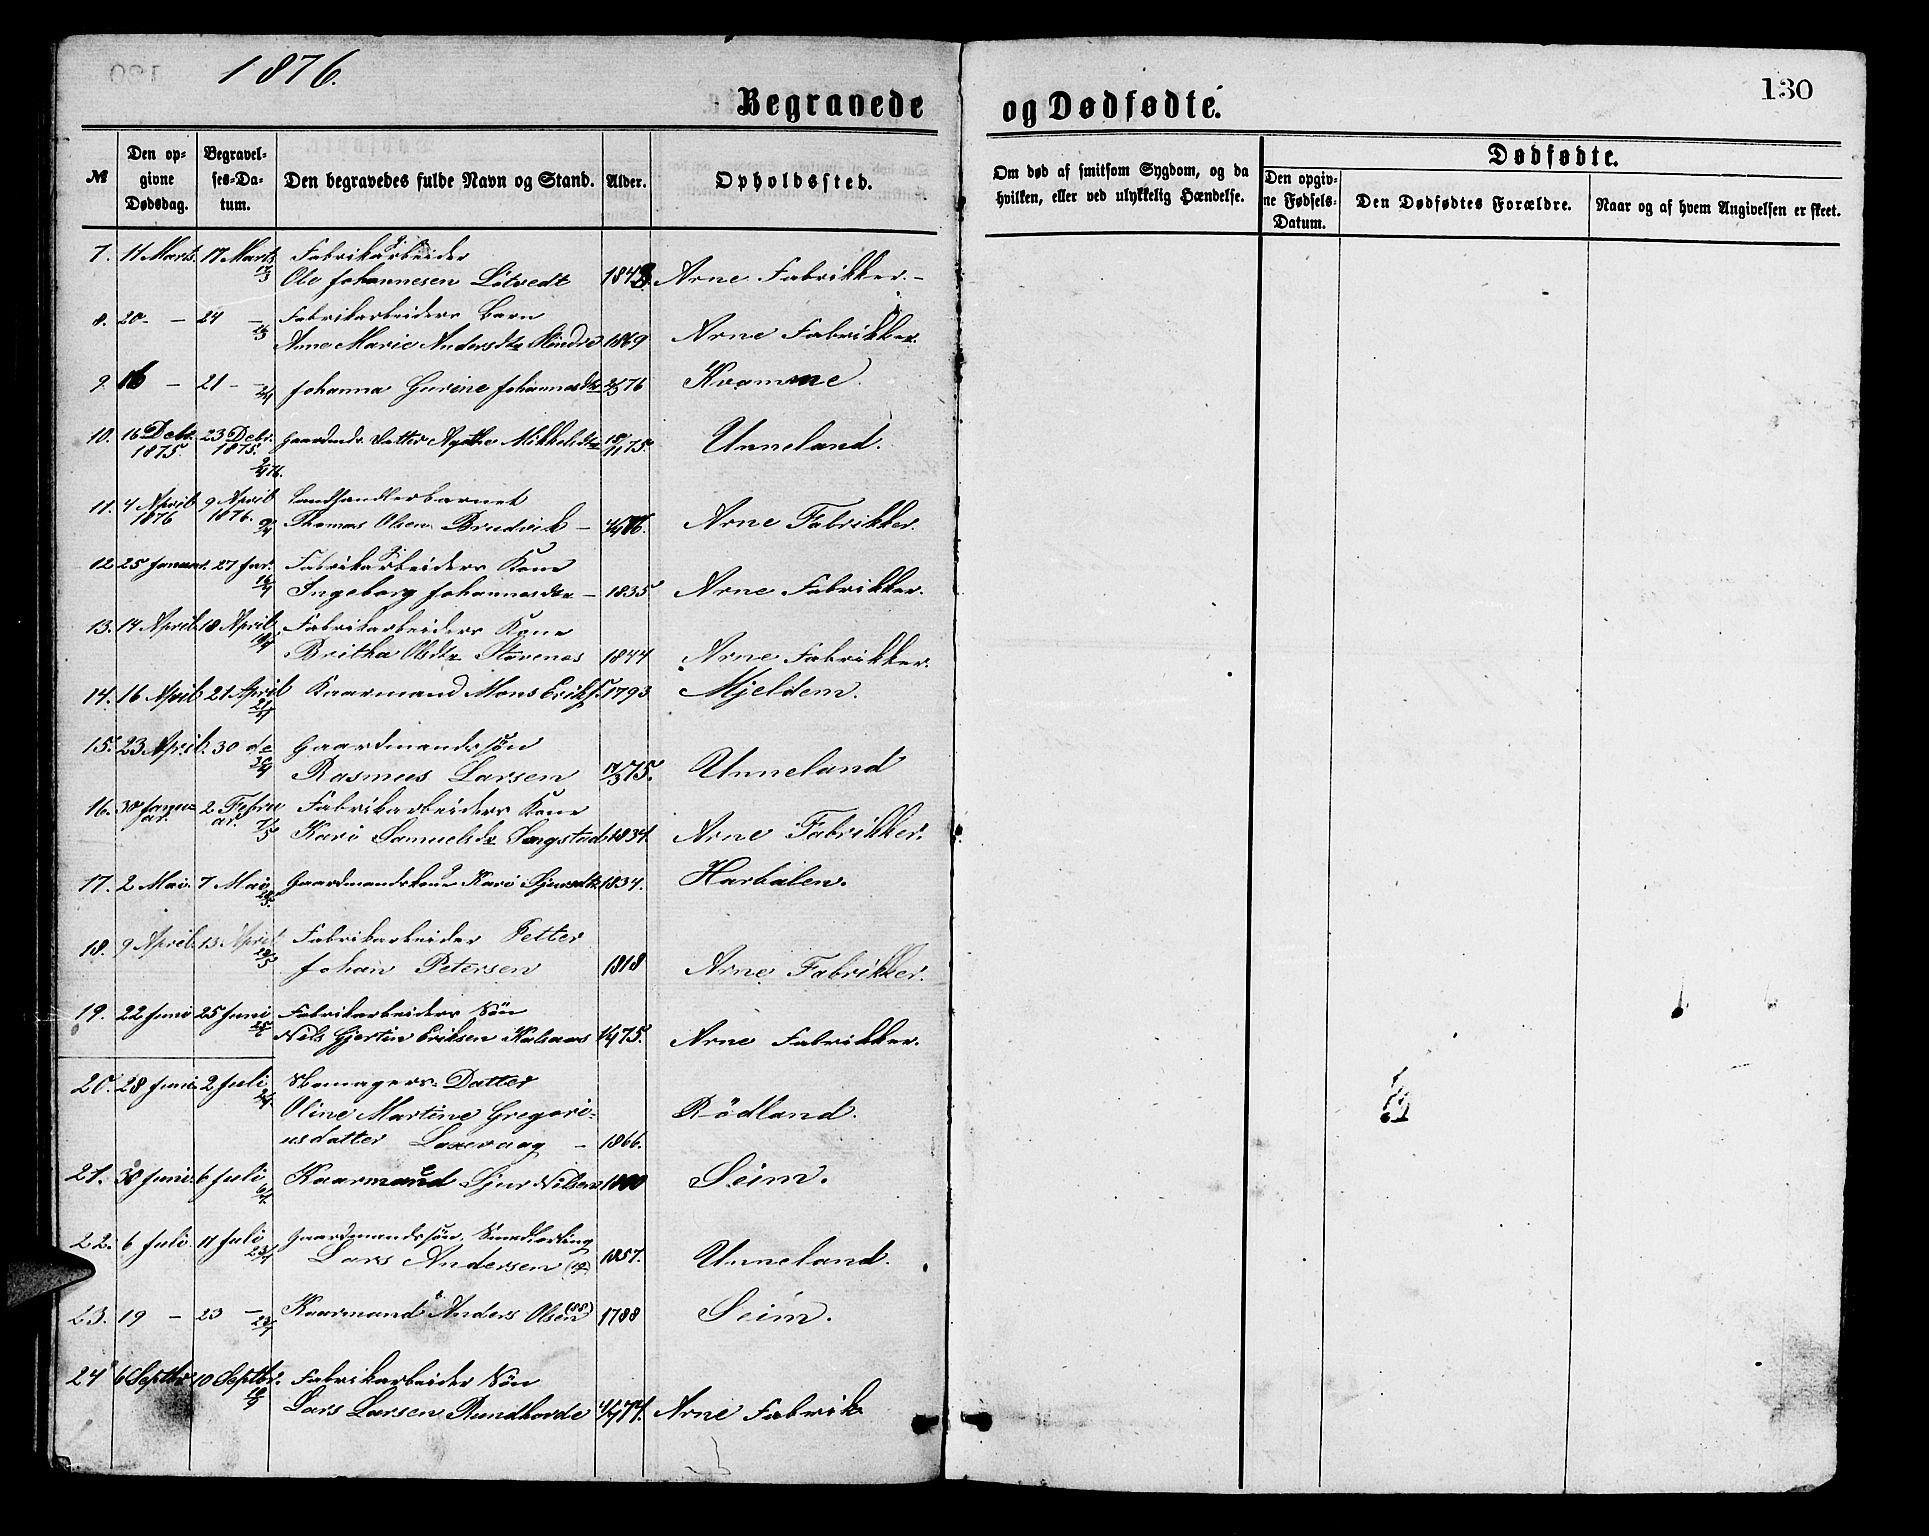 1876.
130
Begravede og Dødfødte.
№
Den opgivne Dødsdag.
Begravelses-Datum.
Den begravedes fulde Navn og Stand.
Alder.
Opholdssted.
Om død af smitsom Sygdom, og da hvilken, eller ved ulykkelig Hændelse.
Dødfødte.
Den opgivne Fødsels-Datum.
Den Dødfødtes Forældre.
Naar og af hvem Angivelsen er skeet.
7. 11 Marts. 17 Marts Fabrikarbeider
Ole Johannesen Lötvedt 1843 Arne Fabrikker.
8. 20 - 24 - Fabrikarbeiders Barn
Anne Marie Andersdtr 1869 Arne Fabrikker.
9. 16 - 21 - Johanna Gurine Johannesdtr 76 Kvamme.
10. 16 Decbr. 1875. 23 Decbr. 1875. Gaardmds. Datter Agathe Mikkelsdtr 75. Unneland.
11. 4 April 1876 9 April 1876. Landhandlerbarnet
Thomas Olsen Brudvik - Arne Fabrikker.
12 25 Januar. 27 Jar. Fabrikarbeiders Kone
Ingeborg Johannesdtr - 1835 Arne Fabrikker.
13. 14 April. 18 April. Fabrikarbeiders Kone
Britha Olsdtr Stavenes 1844 Arne Fabrikker.
14. 16 April. 21 April Kaarmand Mons Eriks. 1793 Mjeldem.
15. 23 April. 30 de Gaardmandssön
Rasmus Larsen 75. Unneland
16. 30 Januar. 2 Februar. Fabrikarbeiders Kone
Kari Samuelsdr 1834. Arne Fabrikker.
17. 2 Mai. 7 Mai Gaardmandskone Kari Sjursdtr 1834. Haukalen.
18. 9 April. 13 April Fabrikarbeider Petter
Johan Petersen 1818 Arne Fabrikker.
19. 22 Juni 25 Juni Fabrikarbeiders Sön
Nils Gjertin Eriksen Kalsaas 75. Arne Fabrikker.
20. 28 Juni. 2 Juli Skomagers Datter
Oline Martine Gregori-
usdatter Laxevaag - 1866. Rödland.
21. 30 Juni. 6 Juli Kaarmand Sjur Nilsen 1800 Seim.
22. 6 Juli. 11 Juli Gaardmandssön, Smedlærling
Lars Andersen (19) 1857. Unneland.
23. 19 - 23 - Kaarmand Anders Olsen (88) 1788 Seim.
24 6 Septbr 10 Septbr. Fabrikarbeider Sön
Lars Larsen Rundhovde 74. Arne Fabrik